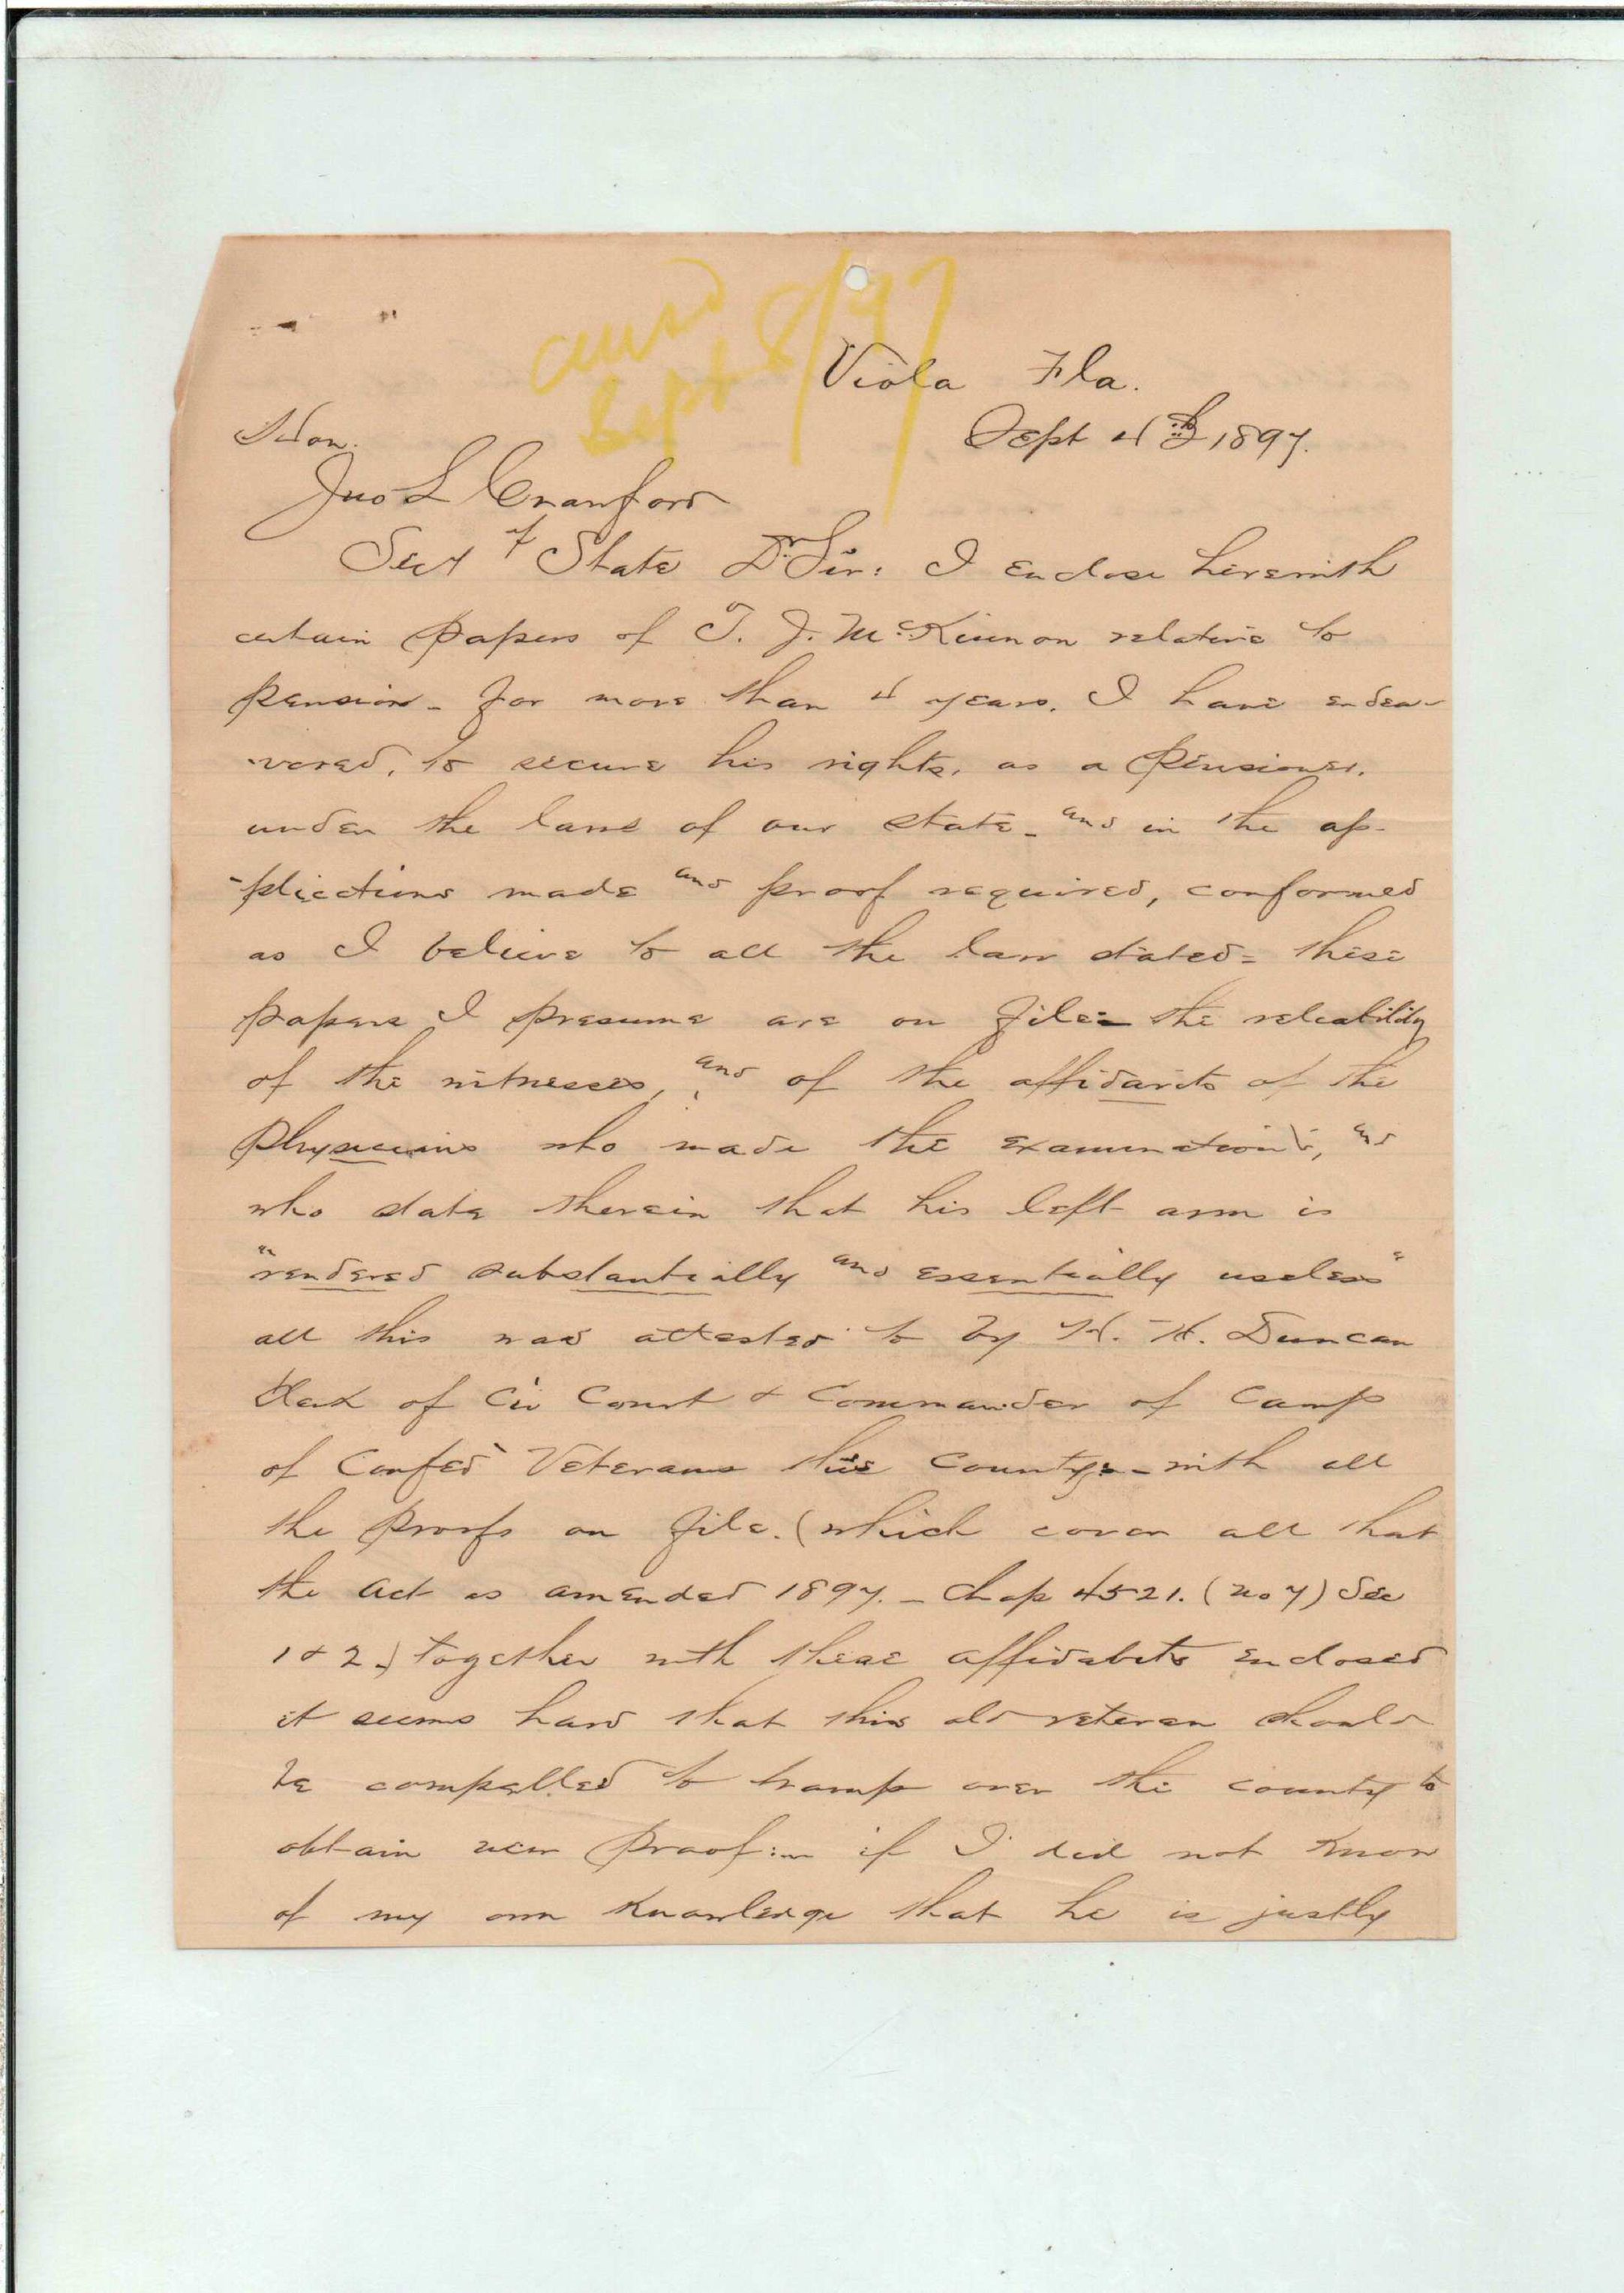 ansd
Sept 8/97
Viola Fla.
Sept 4th 1897.
Hon.
Jno L Crawford
Secy of State Dr Sir: I enclose herewith
certain papers of T. J. McKinnon relative to
pension - for more than 4 years. I have endea-
-vored, to secure his rights, as a pensioner.
under the laws of our state - and in the ap-
-plications made and proof required, conformed
as I believe to all the law stated = these
papers I presume are on file = the reliability
of the witnesses, and of the affidavits of the
Physicians who made the examination, and
who state therein that his left arm is
"rendered substantially and essentially useless"
all this was attested to by H. H. Duncan
Clerk of Cir Court & Commander of Camp
of Confed Veterans this County - with all
the proofs on file. (which cover all that
the act as amended 1897. - Chap 4521. (No 7) Sec
1 & 2.) together with these affidabits enclosed
it seems hard that this old veteran should
be compelled to tramp over the county to
obtain new proof: - if I did not know
of my own knowledge that he is justly